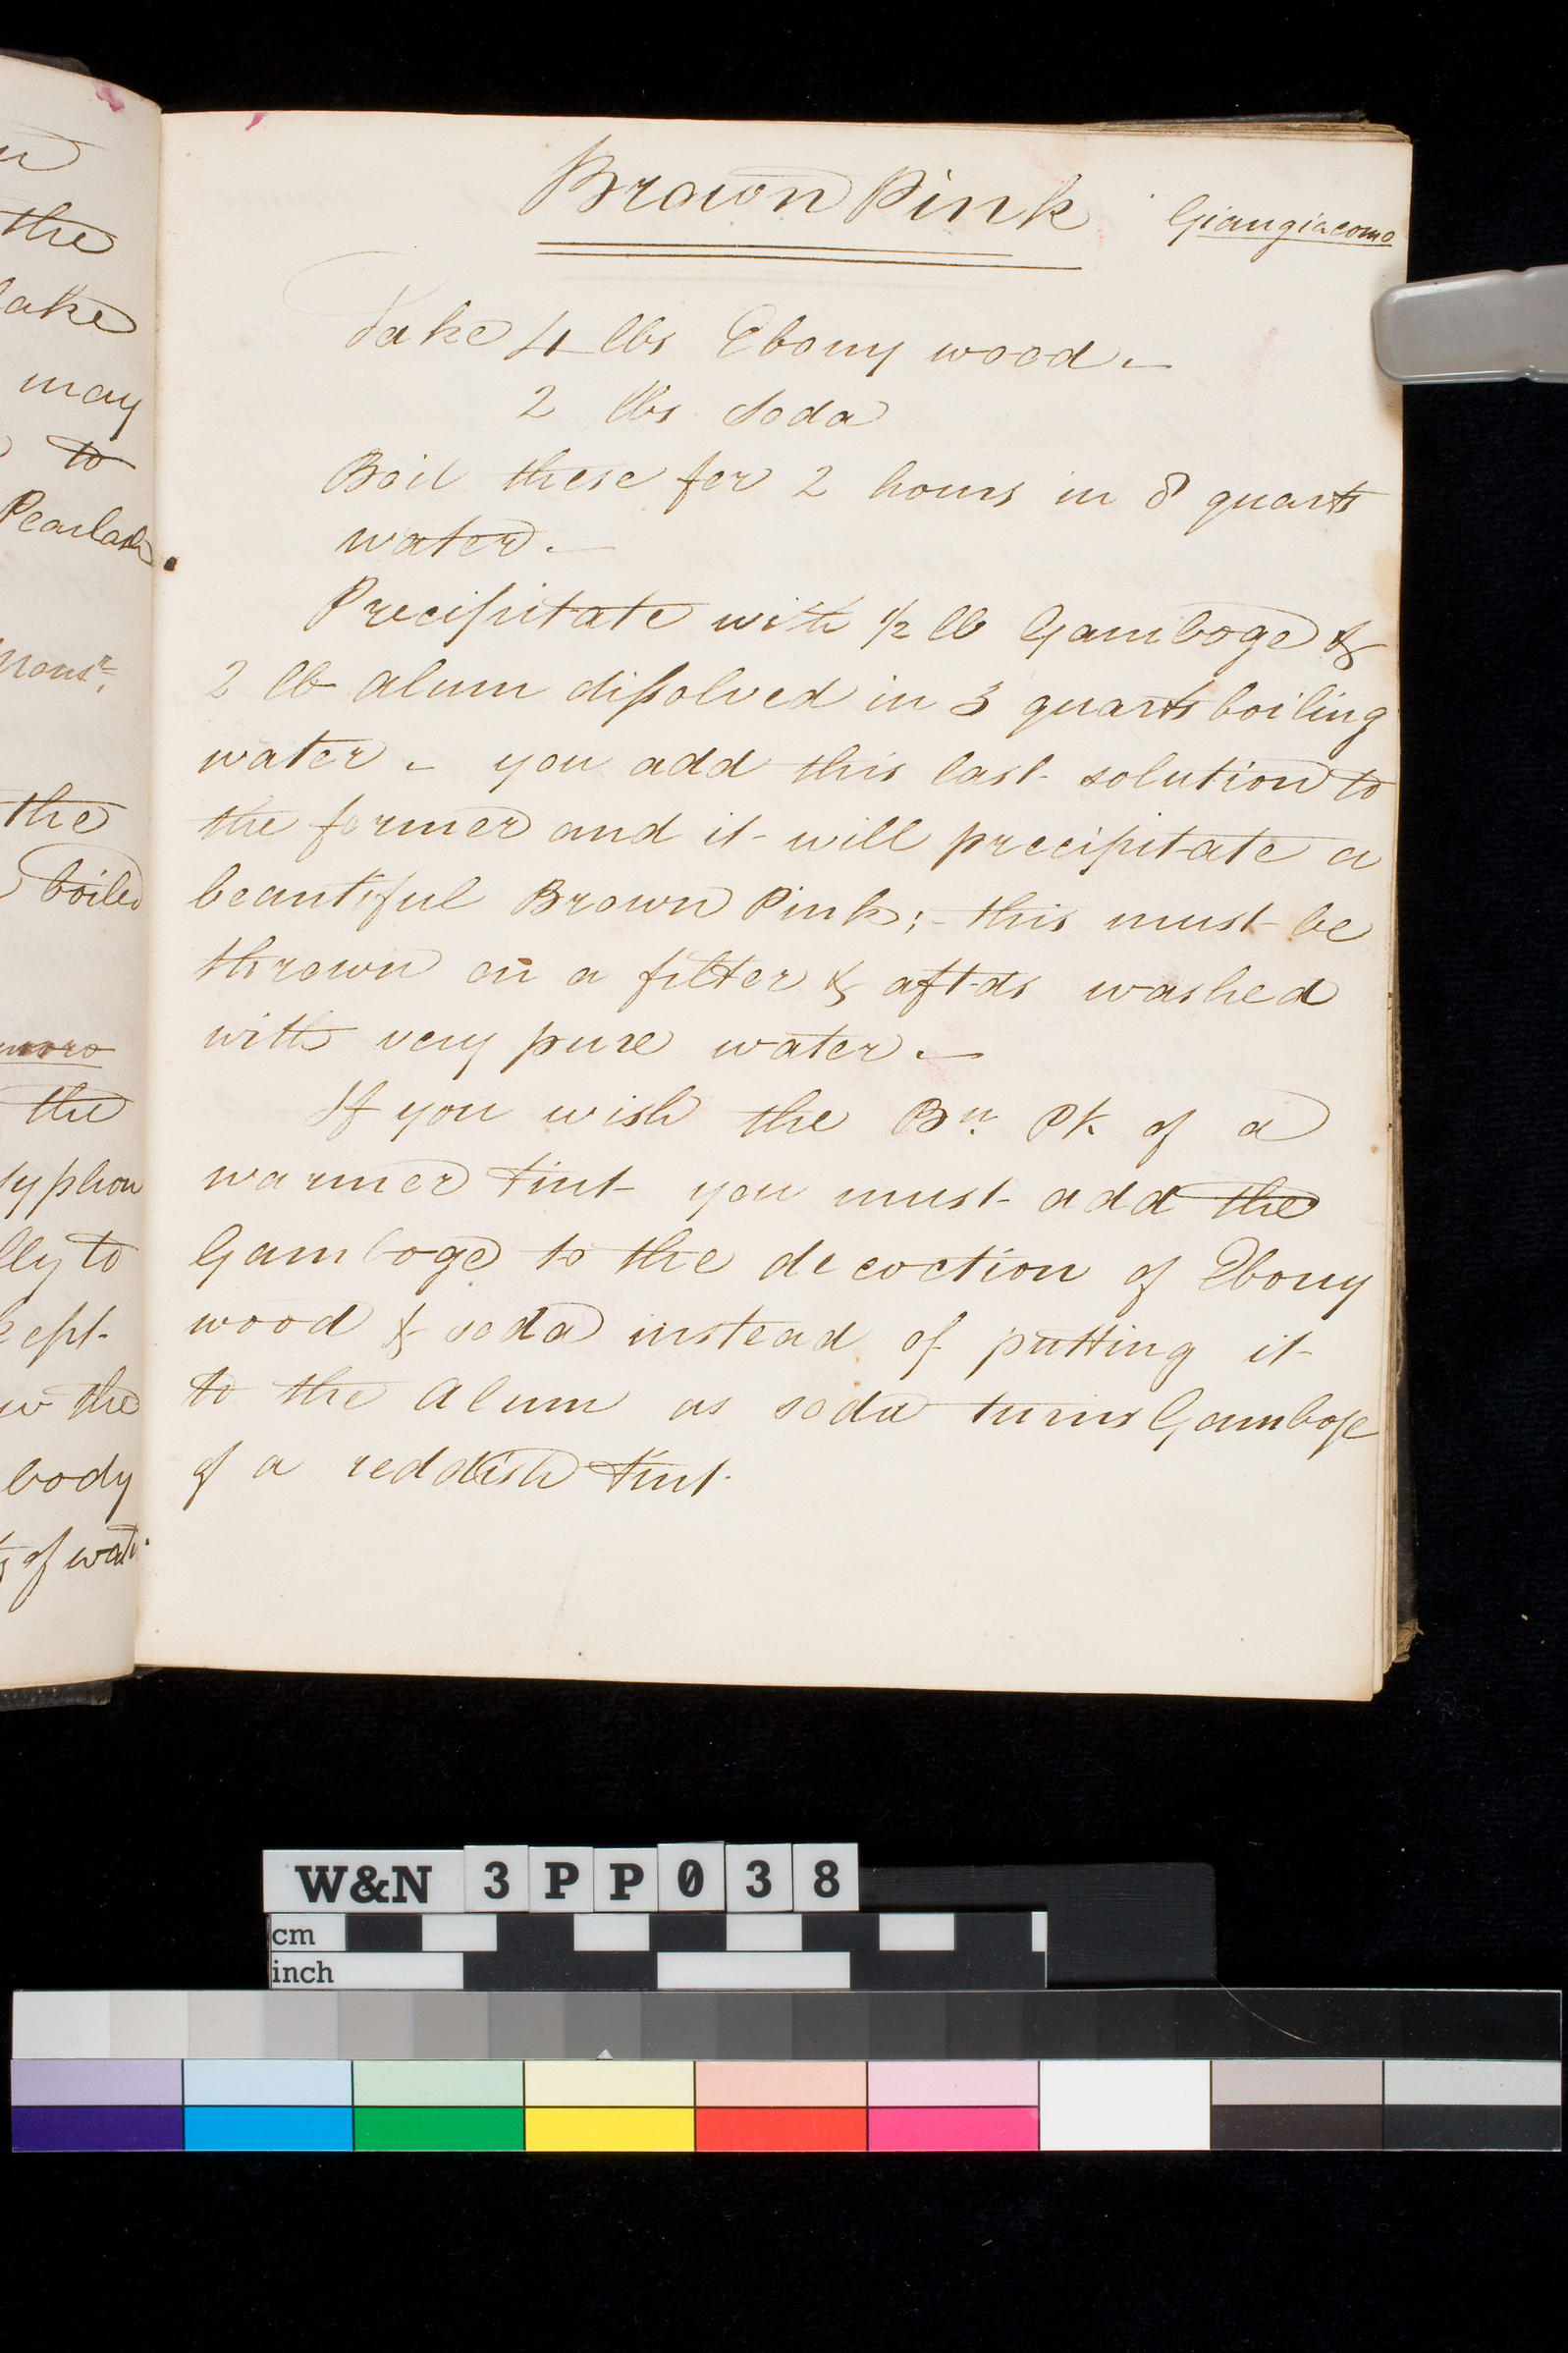 the
may
to
Pearlash
Monsr.
the
boiled
the
syphon
to
the
body
of
Brown Pink
Giangiacomo
Take 4 lbs Ebony wood. —
2 lbs Soda
Boil these for 2 hours in 8 quarts
water. —
Precipitate with 1/2 lb Gamboge &
2 lb alum dissolved in 3 quarts boiling
water. – you add this last solution to
the former and it will precipitate a
beautiful Brown Pink; – this must be
thrown on a filter & aftds washed
with very pure water. —
If you wish the Bn. Pk of a
warmer tint you must add the
Gamboge to the decoction of Ebony
wood & soda instead of putting it
to the Alum as soda turns Gamboge
of a reddish tint.
W&N 3PP038
cm
inch